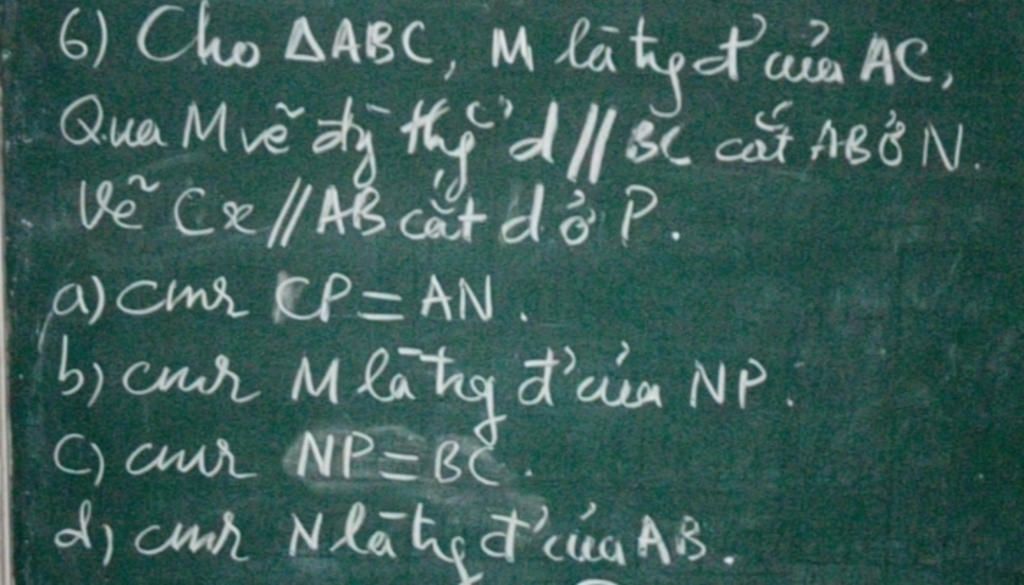 6) Cho ΔABC, M là trg đ' của AC,
Qua M vẽ đg thg' d // BC cắt AB ở N.
Vẽ Cx // AB cắt d ở P.
a) cmr CP = AN.
b) cmr M là trg đ' của NP.
c) cmr NP = BC.
d) cmr N là trg đ' của AB.